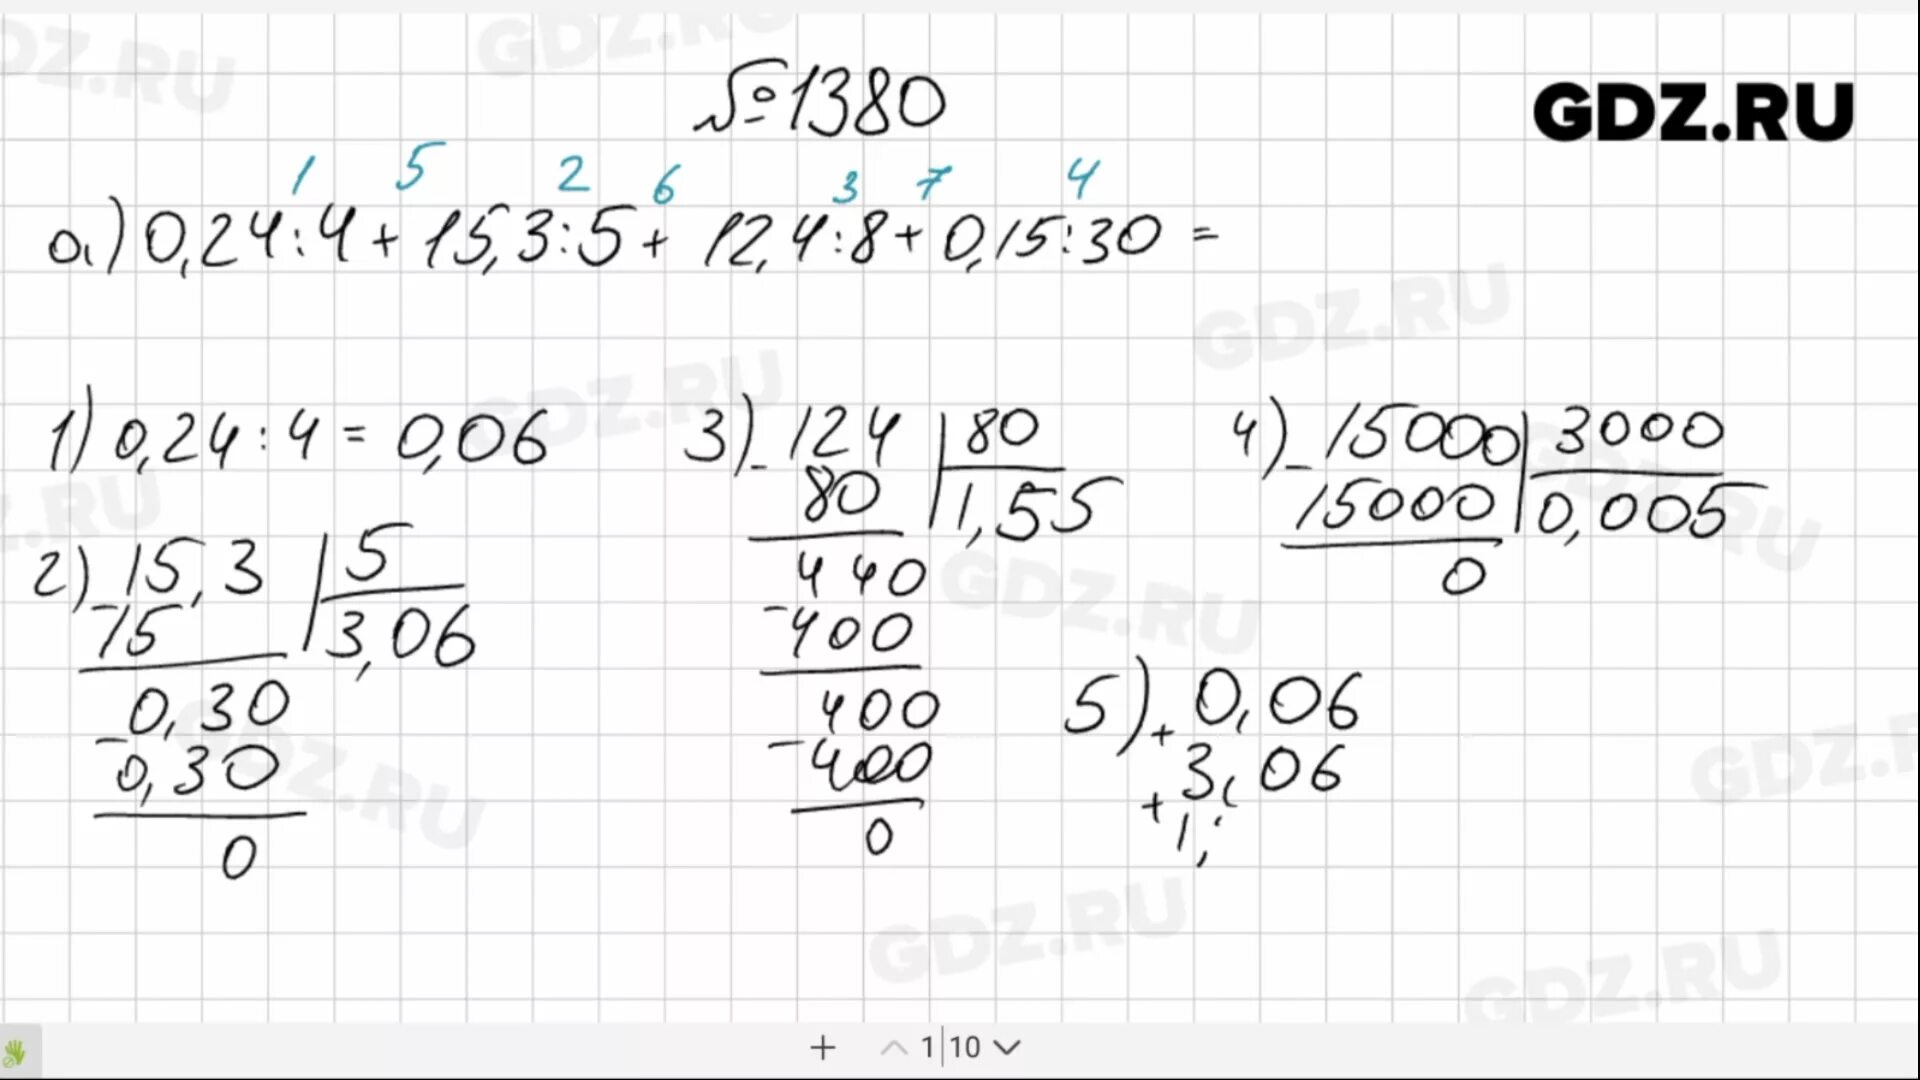 №1380
GDZ.RU
1 5 2 6 3 7 4
а) 0,24:4 + 15,3:5 + 12,4:8 + 0,15:30 =
1) 0,24:4 = 0,06
2) 15,3 | 5
- 15 | 3,06
0,30
- 0,30
0
3) - 124 | 80
80 | 1,55
440
- 400
400
- 400
0
4) - 15000 | 3000
15000 | 0,005
0
5) + 0,06
+ 3,06
1,
+ 1 10